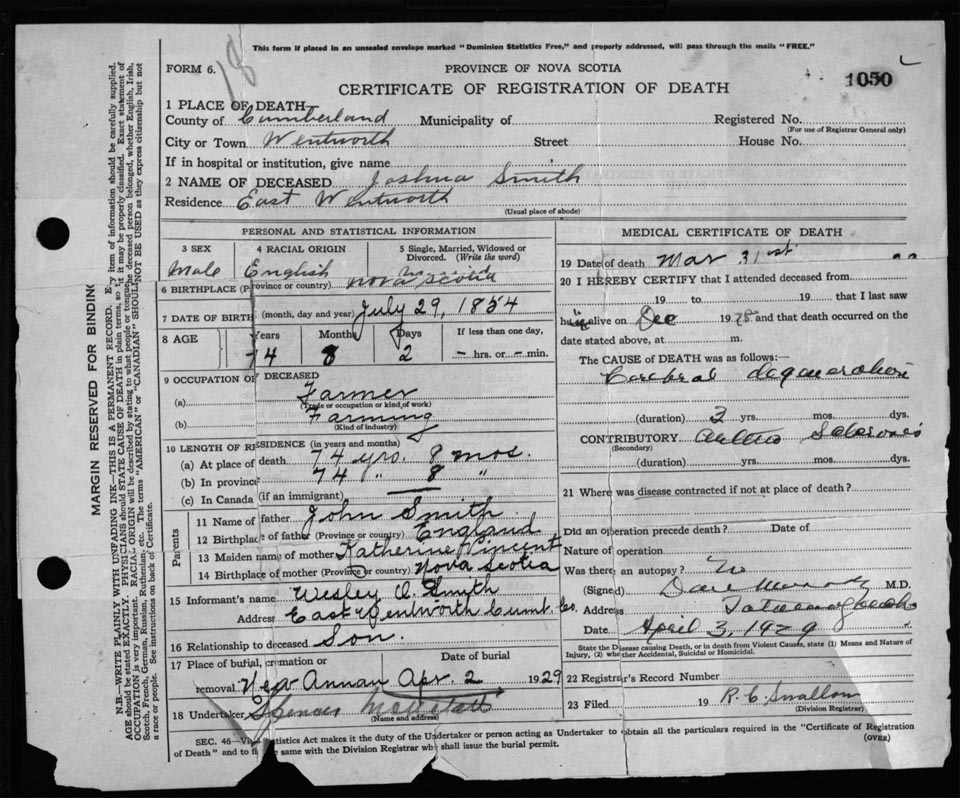 18
This form if placed in an unsealed envelope marked "Dominion Statistics Free," and properly addressed, will pass through the mails "FREE."
FORM 6.
PROVINCE OF NOVA SCOTIA
1050
CERTIFICATE OF REGISTRATION OF DEATH
1 PLACE OF DEATH
County of Cumberland Municipality of Registered No.
(For use of Registrar General only)
City or Town Wentworth Street House No.
If in hospital or institution, give name
2 NAME OF DECEASED Joshua Smith
Residence East Wentworth
(Usual place of abode)
PERSONAL AND STATISTICAL INFORMATION
3 SEX 4 RACIAL ORIGIN 5 Single, Married, Widowed or Divorced. (Write the word)
Male English
6 BIRTHPLACE (Province or country) Nova Scotia
7 DATE OF BIRTH (month, day and year) July 29, 1854
8 AGE Years Months Days If less than one day,
74 8 2 – hrs. or – min.
9 OCCUPATION OF DECEASED
(a) Farmer
(Trade or occupation or kind of work)
(b) Farming
(Kind of industry)
10 LENGTH OF RESIDENCE (in years and months)
(a) At place of death 74 yrs. 8 mos.
(b) In province 74 " 8 "
(c) In Canada (if an immigrant)
Parents
11 Name of father John Smith
12 Birthplace of father (Province or country) England
13 Maiden name of mother Katherine Vincent
14 Birthplace of mother (Province or country) Nova Scotia
15 Informant's name Wesley O. Smith
Address East Wentworth Cumb. Co.
16 Relationship to deceased Son.
17 Place of burial, cremation or Date of burial
removal New Annan Apr. 2 1929
18 Undertaker Spencer
(Name and address)
MEDICAL CERTIFICATE OF DEATH
19 Date of death Mar 31st
20 I HEREBY CERTIFY that I attended deceased from
19 to 19 that I last saw
him alive on Dec 1928 and that death occurred on the
date stated above, at m.
The CAUSE of DEATH was as follows:—
Cerebral degeneration
(duration) 3 yrs. mos. dys.
CONTRIBUTORY
(Secondary)
(duration) yrs. mos. dys.
21 Where was disease contracted if not at place of death?
Did an operation precede death? Date of
Nature of operation
Was there an autopsy? No
(Signed) M.D.
Address Tatamagouche
Date April 3, 1929
State the Disease causing Death, or in death from Violent Causes, state (1) Means and Nature of Injury, (2) whether Accidental, Suicidal or Homicidal.
22 Registrar's Record Number
23 Filed 19 R. C. Swallow
(Division Registrar)
SEC. 46—Vital Statistics Act makes it the duty of the Undertaker or person acting as Undertaker to obtain all the particulars required in the "Certificate of Registration
of Death" and to file same with the Division Registrar who shall issue the burial permit.
(OVER)
MARGIN RESERVED FOR BINDING
N.B.—WRITE PLAINLY WITH UNFADING INK—THIS IS A PERMANENT RECORD. Every item of information should be carefully supplied.
AGE should be stated EXACTLY. PHYSICIANS should STATE CAUSE OF DEATH in plain terms, so it may be properly classified. Exact statement of
OCCUPATION is very important. RACIAL ORIGIN will be described by stating to what people or tongue, deceased person belonged, whether English, Irish,
Scotch, French, German, Russian, Ruthenian, etc. The terms "AMERICAN" or "CANADIAN" SHOULD NOT BE USED as they express citizenship but not
a race or people. See instructions on back of Certificate.